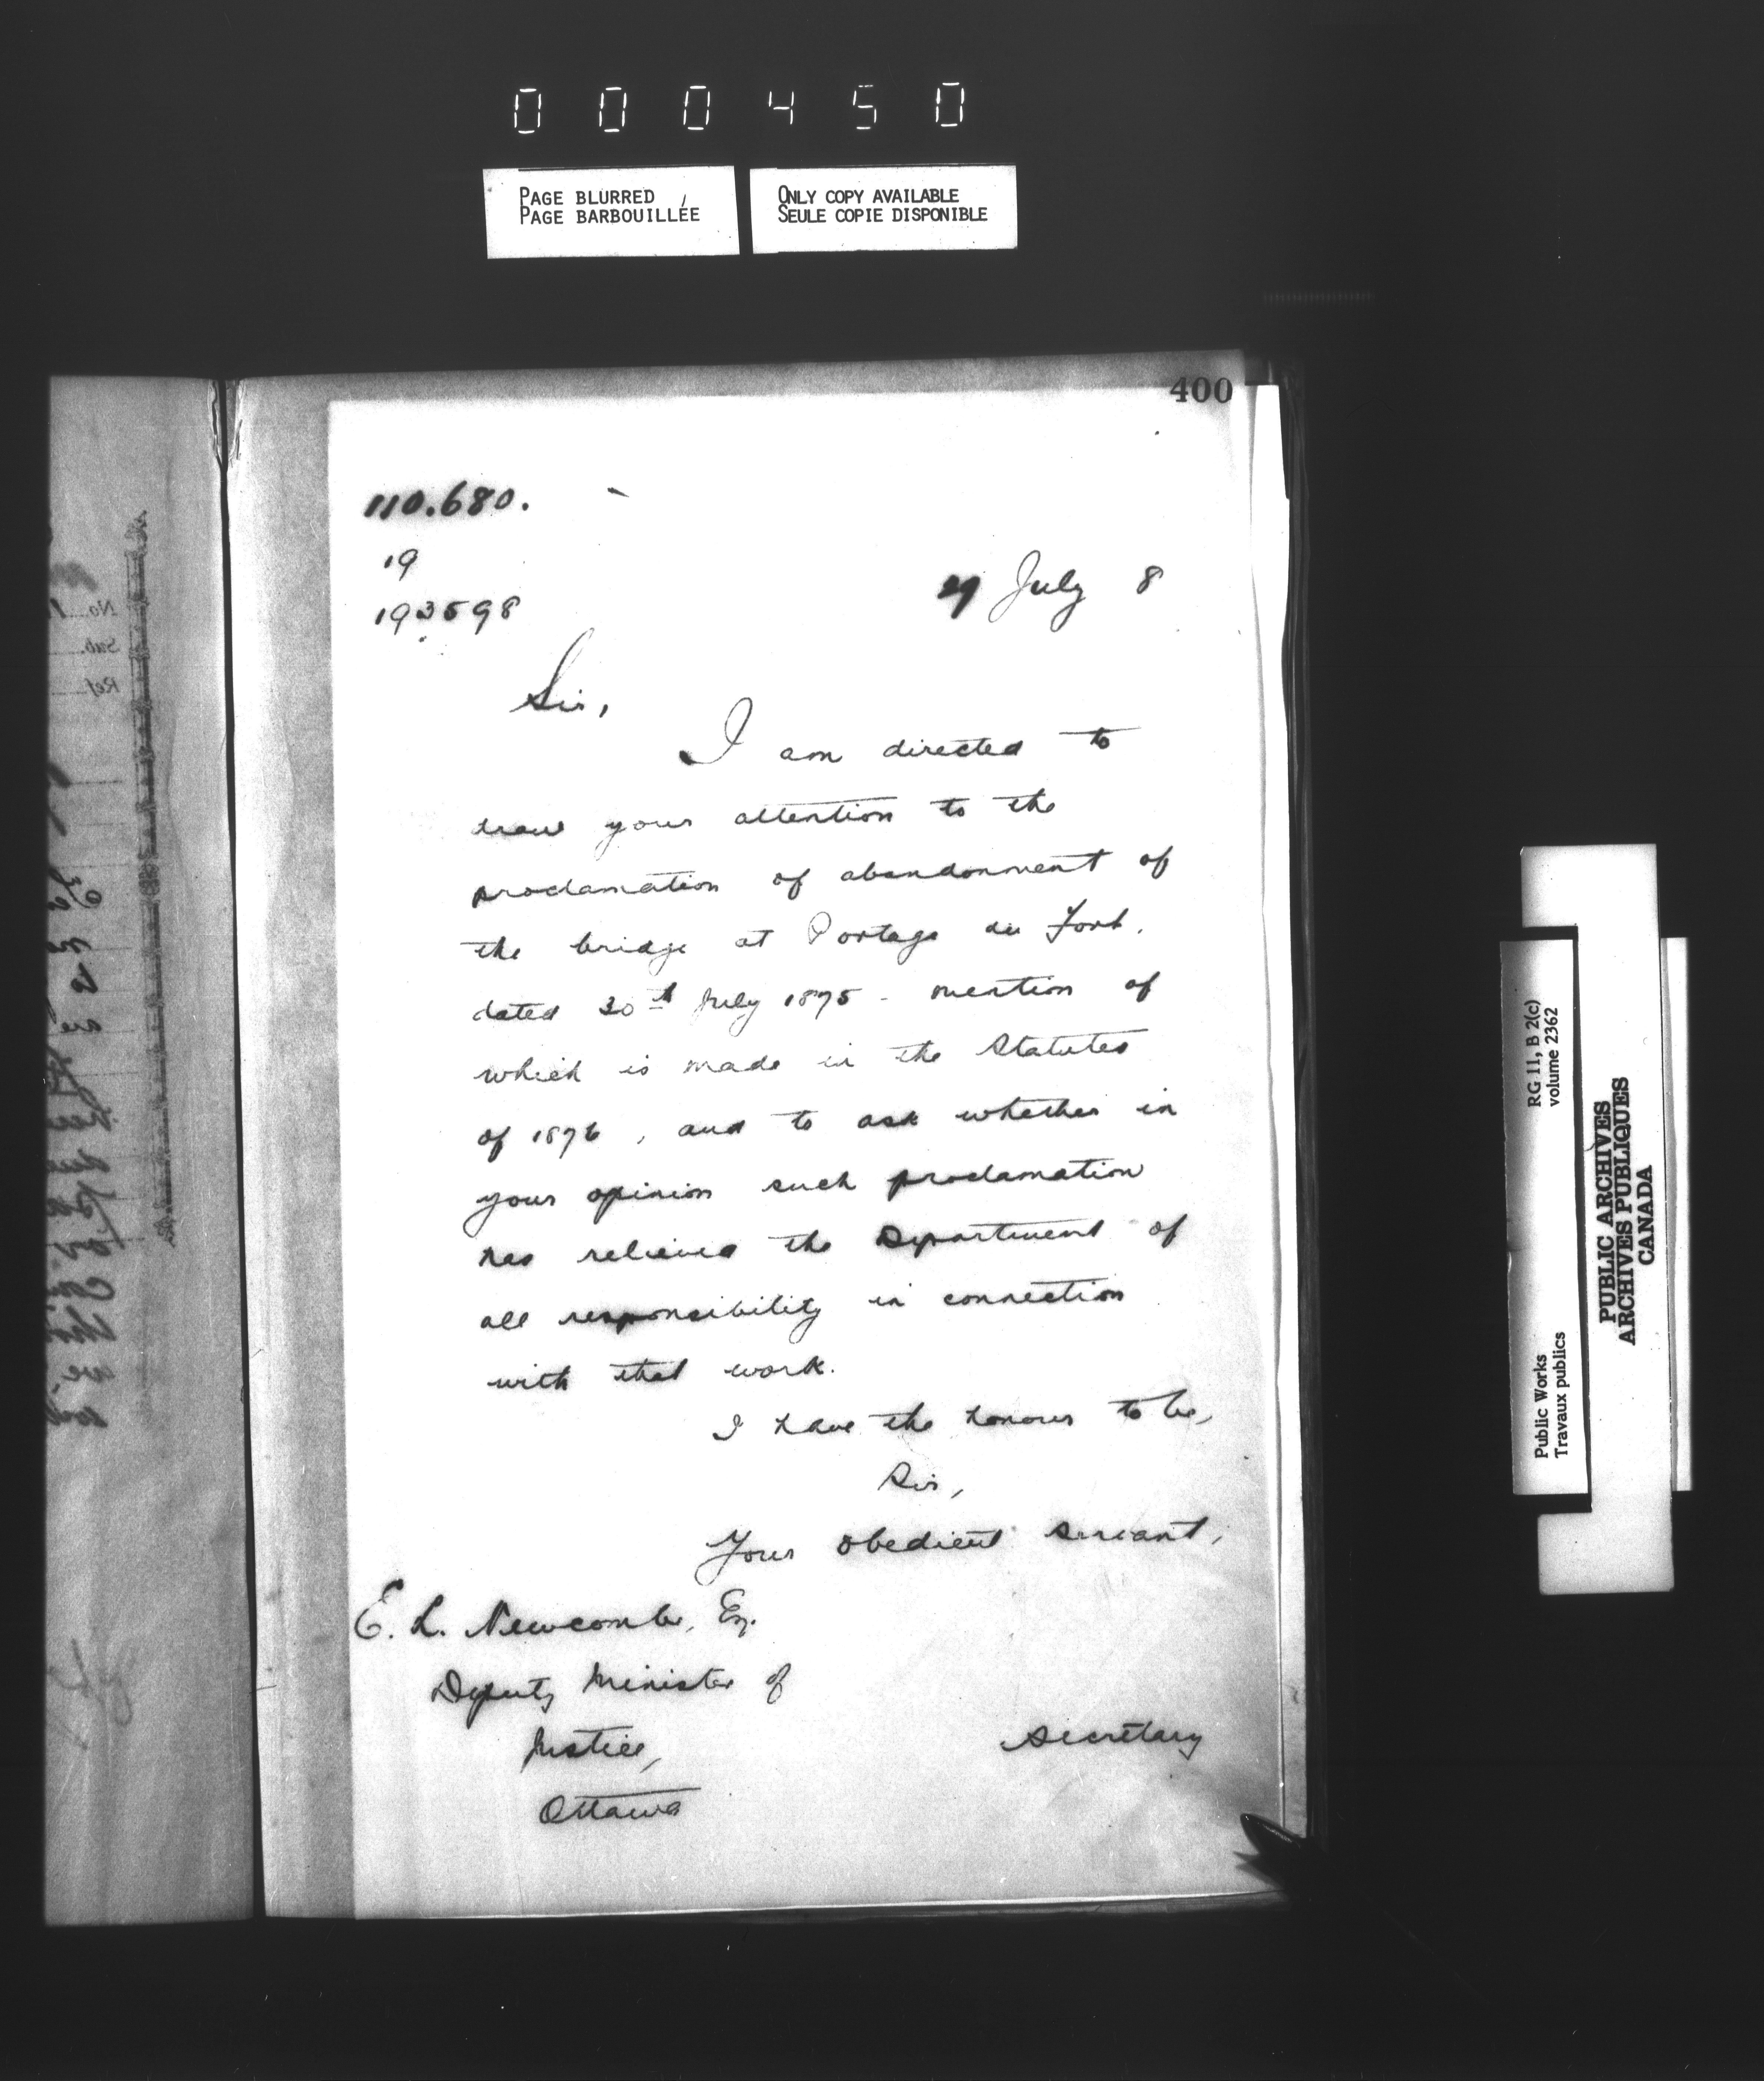 000450
PAGE BLURRED
PAGE BARBOUILLÉE
ONLY COPY AVAILABLE
SEULE COPIE DISPONIBLE
400
110.680.
19
193598
July 8
Sir,
I am directed to
draw your attention to the
proclamation of abandonment of
the bridge at Portage du Fort,
dated 30th July 1875 - mention of
which is made in the Statutes
of 1876, and to ask whether in
your opinion such proclamation
has relieved the Department of
all responsibility in connection
with that work.
I have the honour to be,
Sir,
Your obedient servant,
E. L. Newcombe, Esq.
Deputy Minister of
Justice,
Ottawa
Secretary
No.
Sub.
Ref.
RG 11, B 2(c)
volume 2362
Public Works
Travaux publics
PUBLIC ARCHIVES
ARCHIVES PUBLIQUES
CANADA